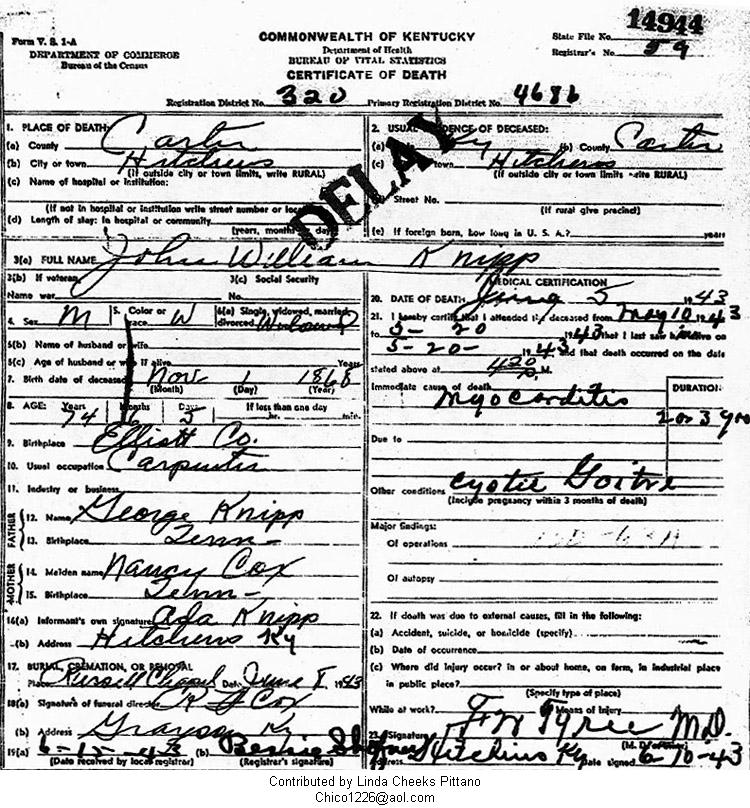 14944
Form V. S. 1-A
COMMONWEALTH OF KENTUCKY
State File No.
DEPARTMENT OF COMMERCE
Department of Health
Registrar's No. 59
Bureau of the Census
BUREAU OF VITAL STATISTICS
CERTIFICATE OF DEATH
Registration District No. 320 Primary Registration District No. 4686
DELAY
1. PLACE OF DEATH:
(a) County Carter
(b) City or town Hitchens
(If outside city or town limits, write RURAL)
(c) Name of hospital or institution:
(If not in hospital or institution write street number or
(d) Length of stay: In hospital or community
(years, months days)
2. USUAL RESIDENCE OF DECEASED:
Ky (b) County Carter
(c) town Hitchens
(If outside city or town limits write RURAL)
Street No.
(If rural give precinct)
(e) If foreign born, how long in U. S. A.? years
3(a) FULL NAME John William Knipp
3(b) If veteran 3(c) Social Security
Name war No.
4. Sex M 5. Color or race W 6(a) Single, widowed, married, divorced Widowed
6(b) Name of husband or wife
6(c) Age of husband or wife if alive Years
7. Birth date of deceased Nov 1 1868
(Month) (Day) (Year)
8. AGE: Years Months Days If less than one day
74 6 5 hr. min.
9. Birthplace Elliott Co.
10. Usual occupation Carpenter
11. Industry or business
FATHER
12. Name George Knipp
13. Birthplace Tenn-
MOTHER
14. Maiden name Nancy Cox
15. Birthplace Tenn-
16(a) Informant's own signature Ada Knipp
(b) Address Hitchens Ky
17. BURIAL, CREMATION, OR REMOVAL
Place Russell Chapel Date June 43
18(a) Signature of funeral director Cox
(b) Address Grayson Ky
19(a) 6-15-43 (b) Bessie
(Date received by local registrar) (Registrar's signature)
MEDICAL CERTIFICATION
20. DATE OF DEATH June 5 1943
21. I hereby certify that I attended the deceased from May 10 1943
to 5-20 1943 that I last saw him alive on
5-20- 1943 and that death occurred on the date
stated above at 430 M.
Immediate cause of death DURATION
Myocarditis 2 or 3 yrs
Due to
Other conditions Cystic Goitre
(Include pregnancy within 3 months of death)
Major findings:
Of operations
Of autopsy
22. If death was due to external causes, fill in the following:
(a) Accident, suicide, or homicide (specify)
(b) Date of occurrence
(c) Where did injury occur? in or about home, on farm, in industrial place
in public place?
(Specify type of place)
While at work? Means of injury
23. Signature F W Tyree M.D.
Address Hitchins Ky Date signed 6-10-43
Contributed by Linda Cheeks Pittano
Chico1226@aol.com